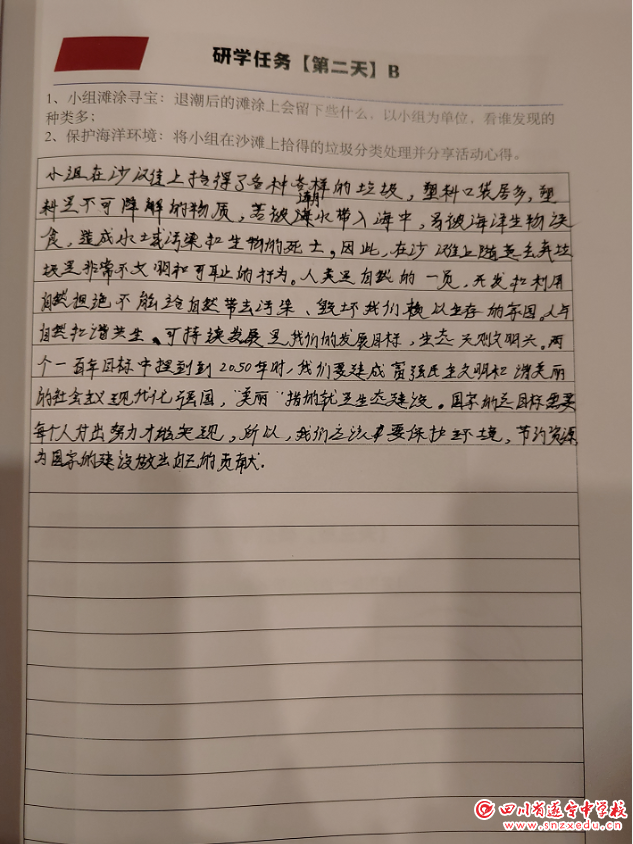 研学任务【第二天】B
1、小组滩涂寻宝：退潮后的滩涂上会留下些什么，以小组为单位，看谁发现的
种类多；
2、保护海洋环境：将小组在沙滩上拾得的垃圾分类处理并分享活动心得。
小组在沙滩上拾得了各种各样的垃圾，塑料口袋居多，塑
料是不可降解的物质，若被潮水带入海中，易被海洋生物误
食，造成水域污染和生物的死亡。因此，在沙滩上随意丢弃垃
圾是非常不文明和可耻的行为。人类是自然的一员，开发和利用
自然但绝不能给自然带去污染、毁坏我们赖以生存的家园。人与
自然和谐共生、可持续发展是我们的发展目标，生态兴则文明兴。两
个一百年目标中提到到2050年时，我们要建成富强民主文明和谐美丽
的社会主义现代化强国，“美丽”指的就是生态建设。国家的这目标需要
每个人付出努力才能实现，所以，我们应该要保护环境，节约资源
为国家的建设做出自己的贡献.
四川省遂宁中学校
www.snzxedu.cn